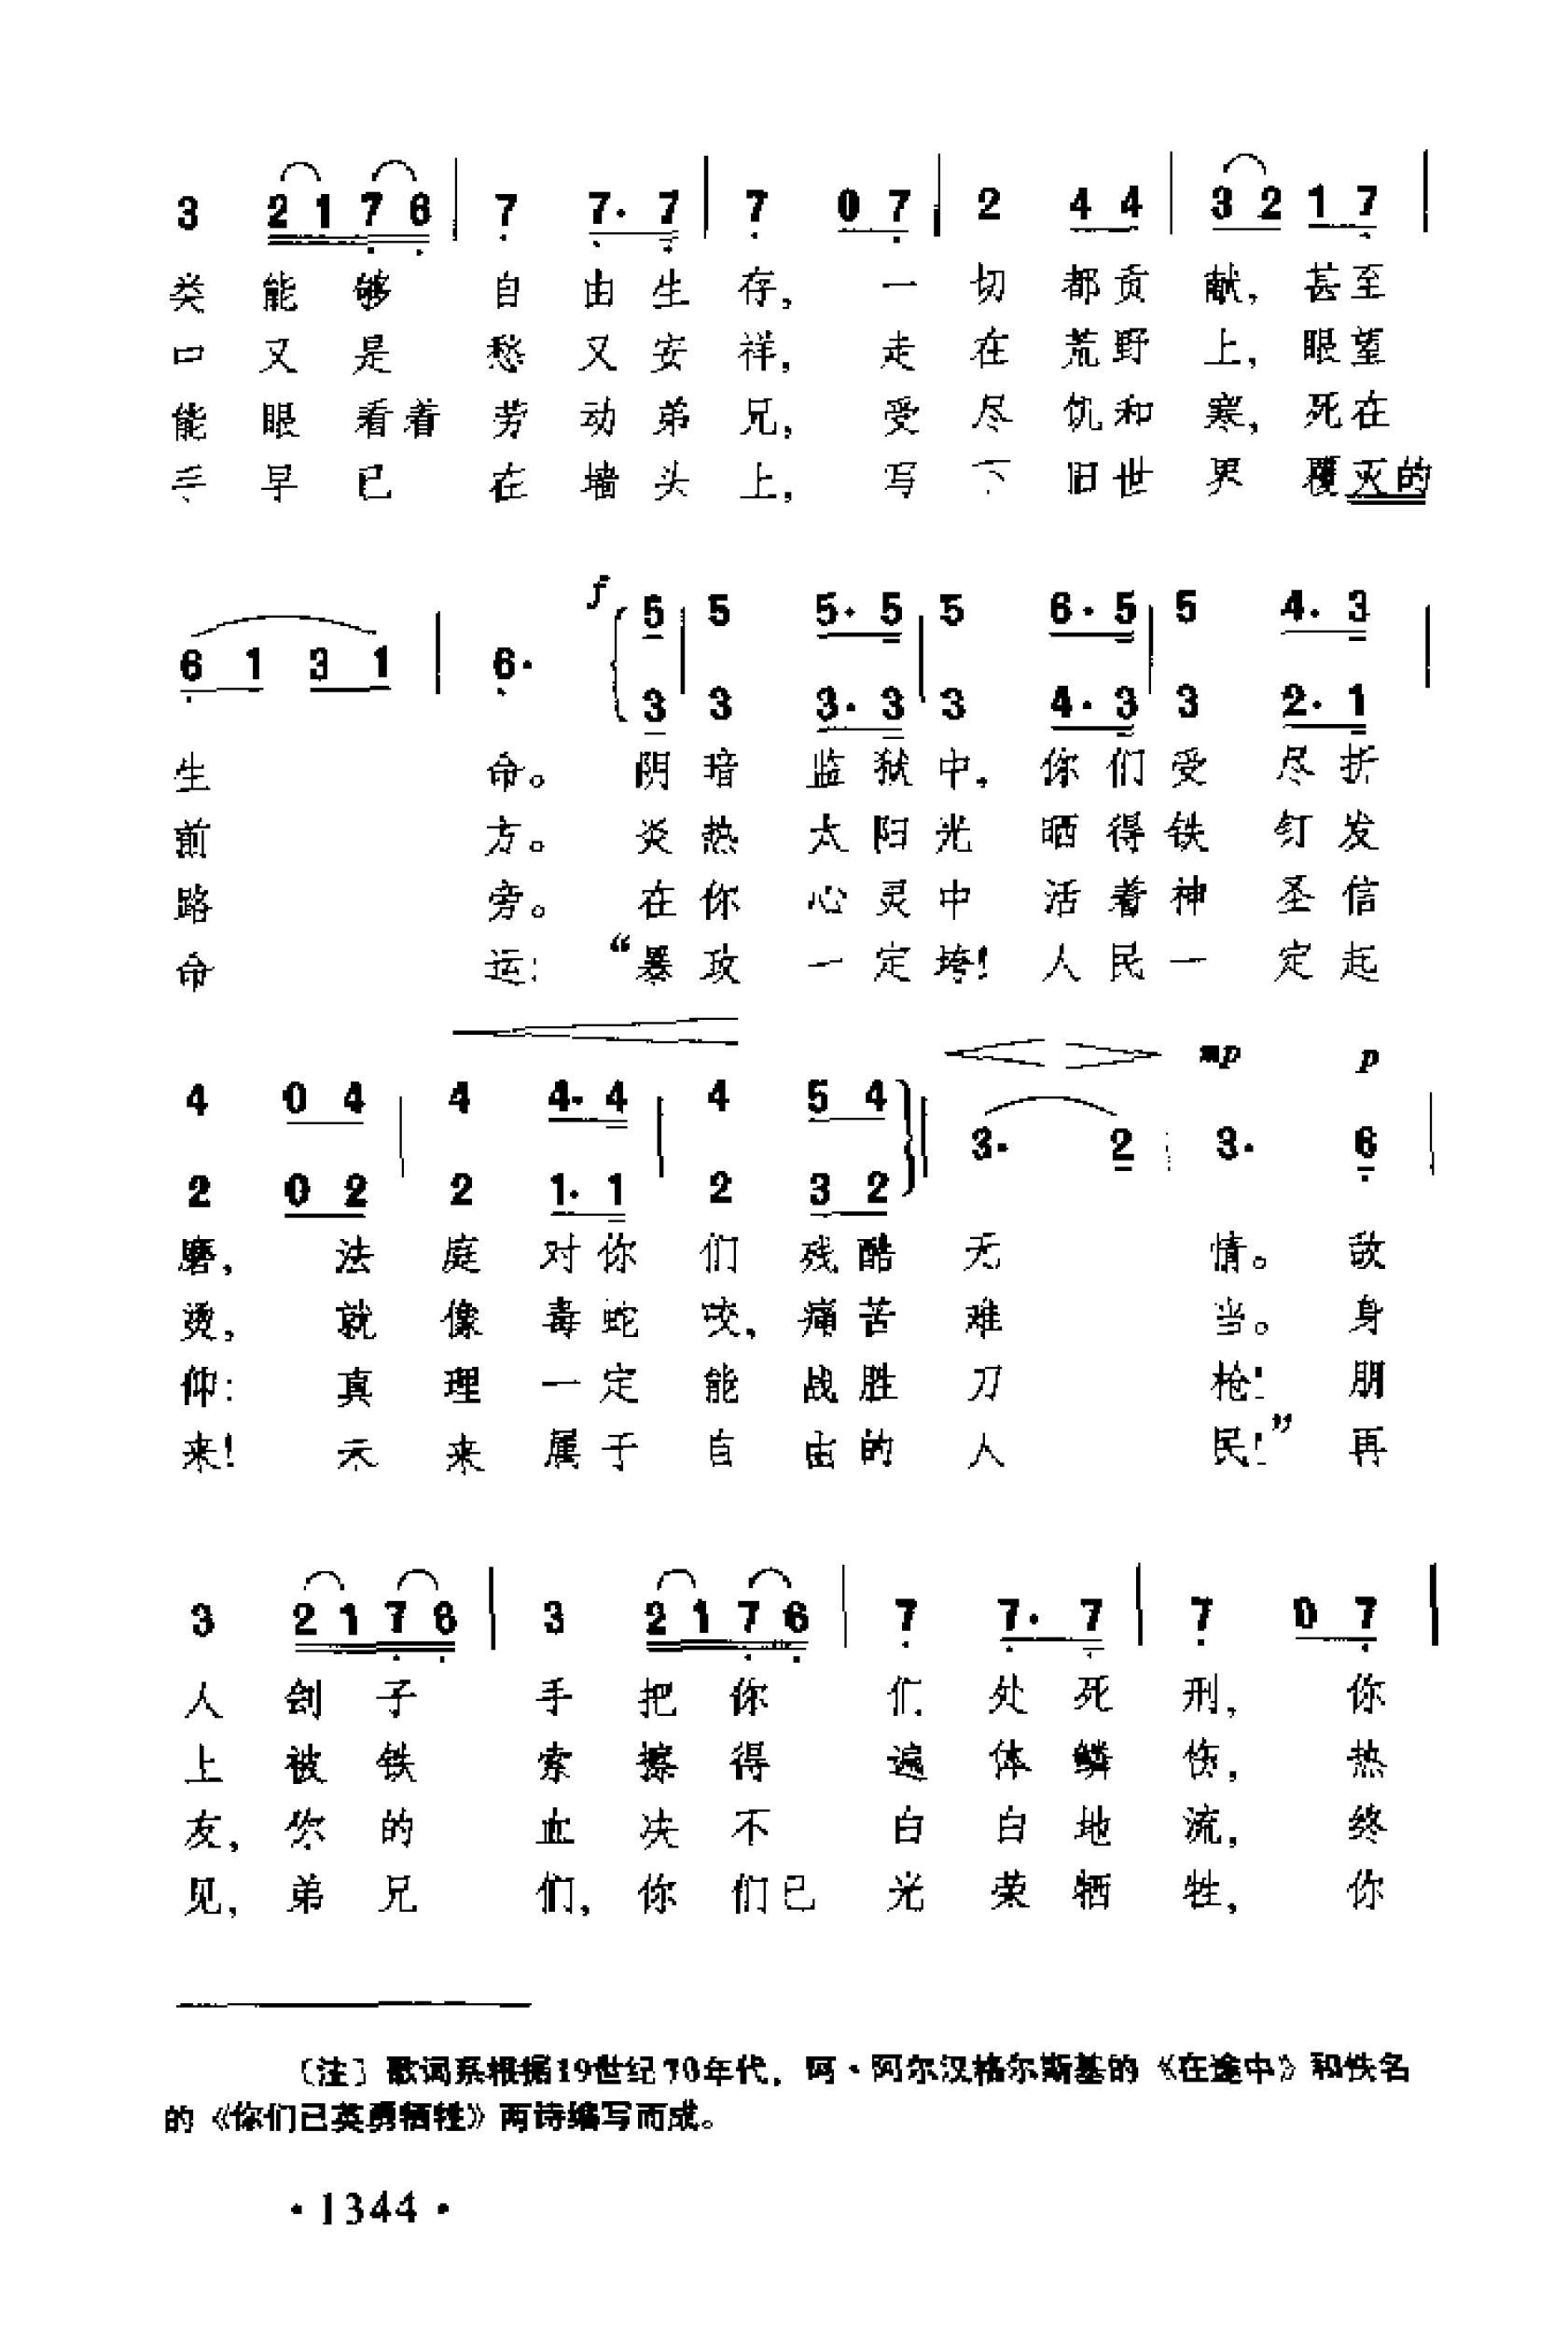 3 2 1 7 6 | 7 7. 7 | 7 0 7 | 2 4 4 | 3 2 1 7 |
类 能 够 自 由 生 存, 一 切 都 贡 献, 甚 至
口 又 是 愁 又 安 祥, 走 在 荒 野 上, 眼 望
能 眼 看 着 劳 动 弟 兄, 受 尽 饥 和 寒, 死 在
手 早 已 在 墙 头 上, 写 下 旧 世 界 覆 灭 的
f
5 | 5 5. 5 | 5 6. 5 | 5 4. 3 |
6 1 3 1 | 6.
3 | 3 3. 3 | 3 4. 3 | 3 2. 1 |
生 命。 阴 暗 监 狱 中, 你 们 受 尽 折
前 方。 炎 热 太 阳 光 晒 得 铁 钉 发
路 旁。 在 你 心 灵 中 活 着 神 圣 信
命 运: “暴 政 一 定 垮! 人 民 一 定 起
mp p
4 0 4 | 4 4. 4 | 4 5 4 | 3. 2 | 3. 6 |
2 0 2 | 2 1. 1 | 2 3 2
磨, 法 庭 对 你 们 残 酷 无 情。 敌
烫, 就 像 毒 蛇 咬, 痛 苦 难 当。 身
仰: 真 理 一 定 能 战 胜 刀 枪! 朋
来! 未 来 属 于 自 由 的 人 民!” 再
3 2 1 7 6 | 3 2 1 7 6 | 7 7. 7 | 7 0 7 |
人 刽 子 手 把 你 们 处 死 刑, 你
上 被 铁 索 擦 得 遍 体 鳞 伤, 热
友, 你 的 血 决 不 白 白 地 流, 终
见, 弟 兄 们, 你 们 已 光 荣 牺 牲, 你
〔注〕歌词系根据19世纪70年代, 阿·阿尔汉格尔斯基的《在途中》和佚名
的《你们已英勇牺牲》两诗编写而成。
·1344·